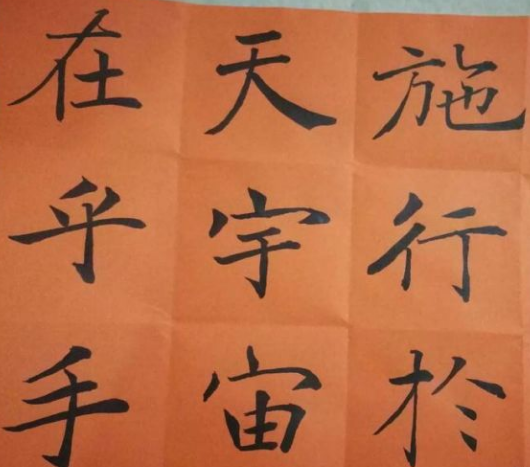 施行於
天宇宙
在乎手